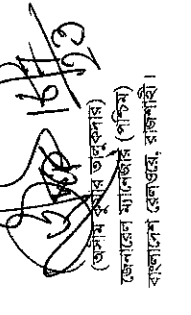 ১৬/৭/২৩
(অসীম কুমার তালুকদার)
জেনারেল ম্যানেজার (পশ্চিম)
বাংলাদেশ রেলওয়ে, রাজশাহী।